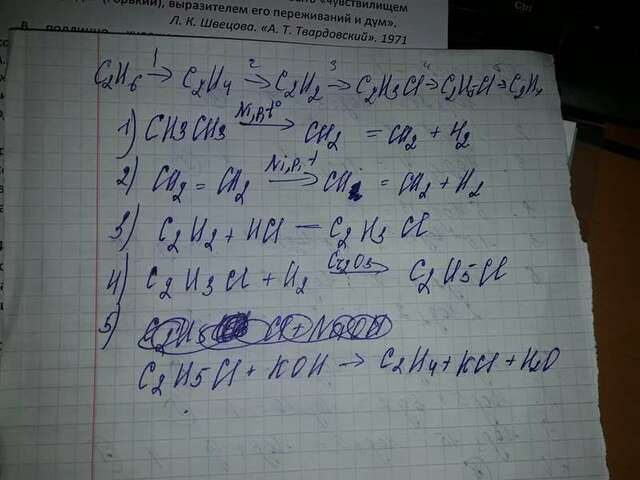 (Горький), выразителем его переживаний и дум».
Л. К. Швецова. «А. Т. Твардовский». 1971
Ctrl
1 2 3 4 5
C2H6 → C2H4 → C2H2 → C2H3Cl → C2H5Cl → C2H4
1) CH3CH3 Ni,Pt,t° → CH2 = CH2 + H2
2) CH2 = CH2 Ni,Pt,t → CH2 = CH2 + H2
3) C2H2 + HCl — C2H3Cl
4) C2H3Cl + H2 Cr2O3 → C2H5Cl
5)
C2H5Cl + KOH → C2H4 + KCl + H2O